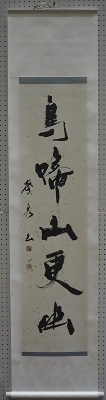 鳥啼山更幽